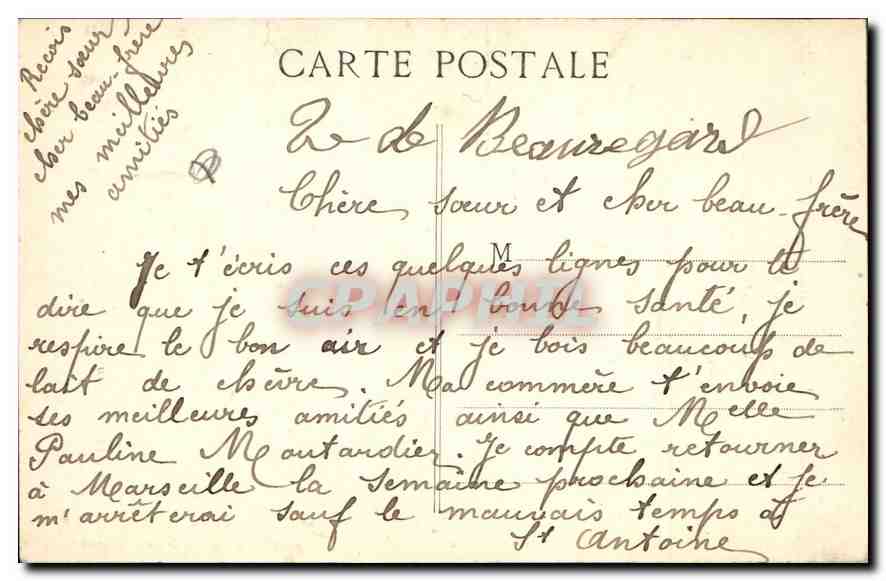 CARTE POSTALE
Reçois
chère sœur
cher beau-frère
mes meilleures
amitiés
de Beauregard
Chère sœur et cher beau-frère
M
Je t'écris ces quelques lignes pour te
dire que je suis en bonne santé, je
respire le bon air et je bois beaucoup de
lait de chèvre. Ma commère t'envoie
ses meilleures amitiés ainsi que Melle
Pauline Moutardier. Je compte retourner
à Marseille la semaine prochaine et je
m'arrêterai sauf le mauvais temps à
St Antoine
CPAPHIL